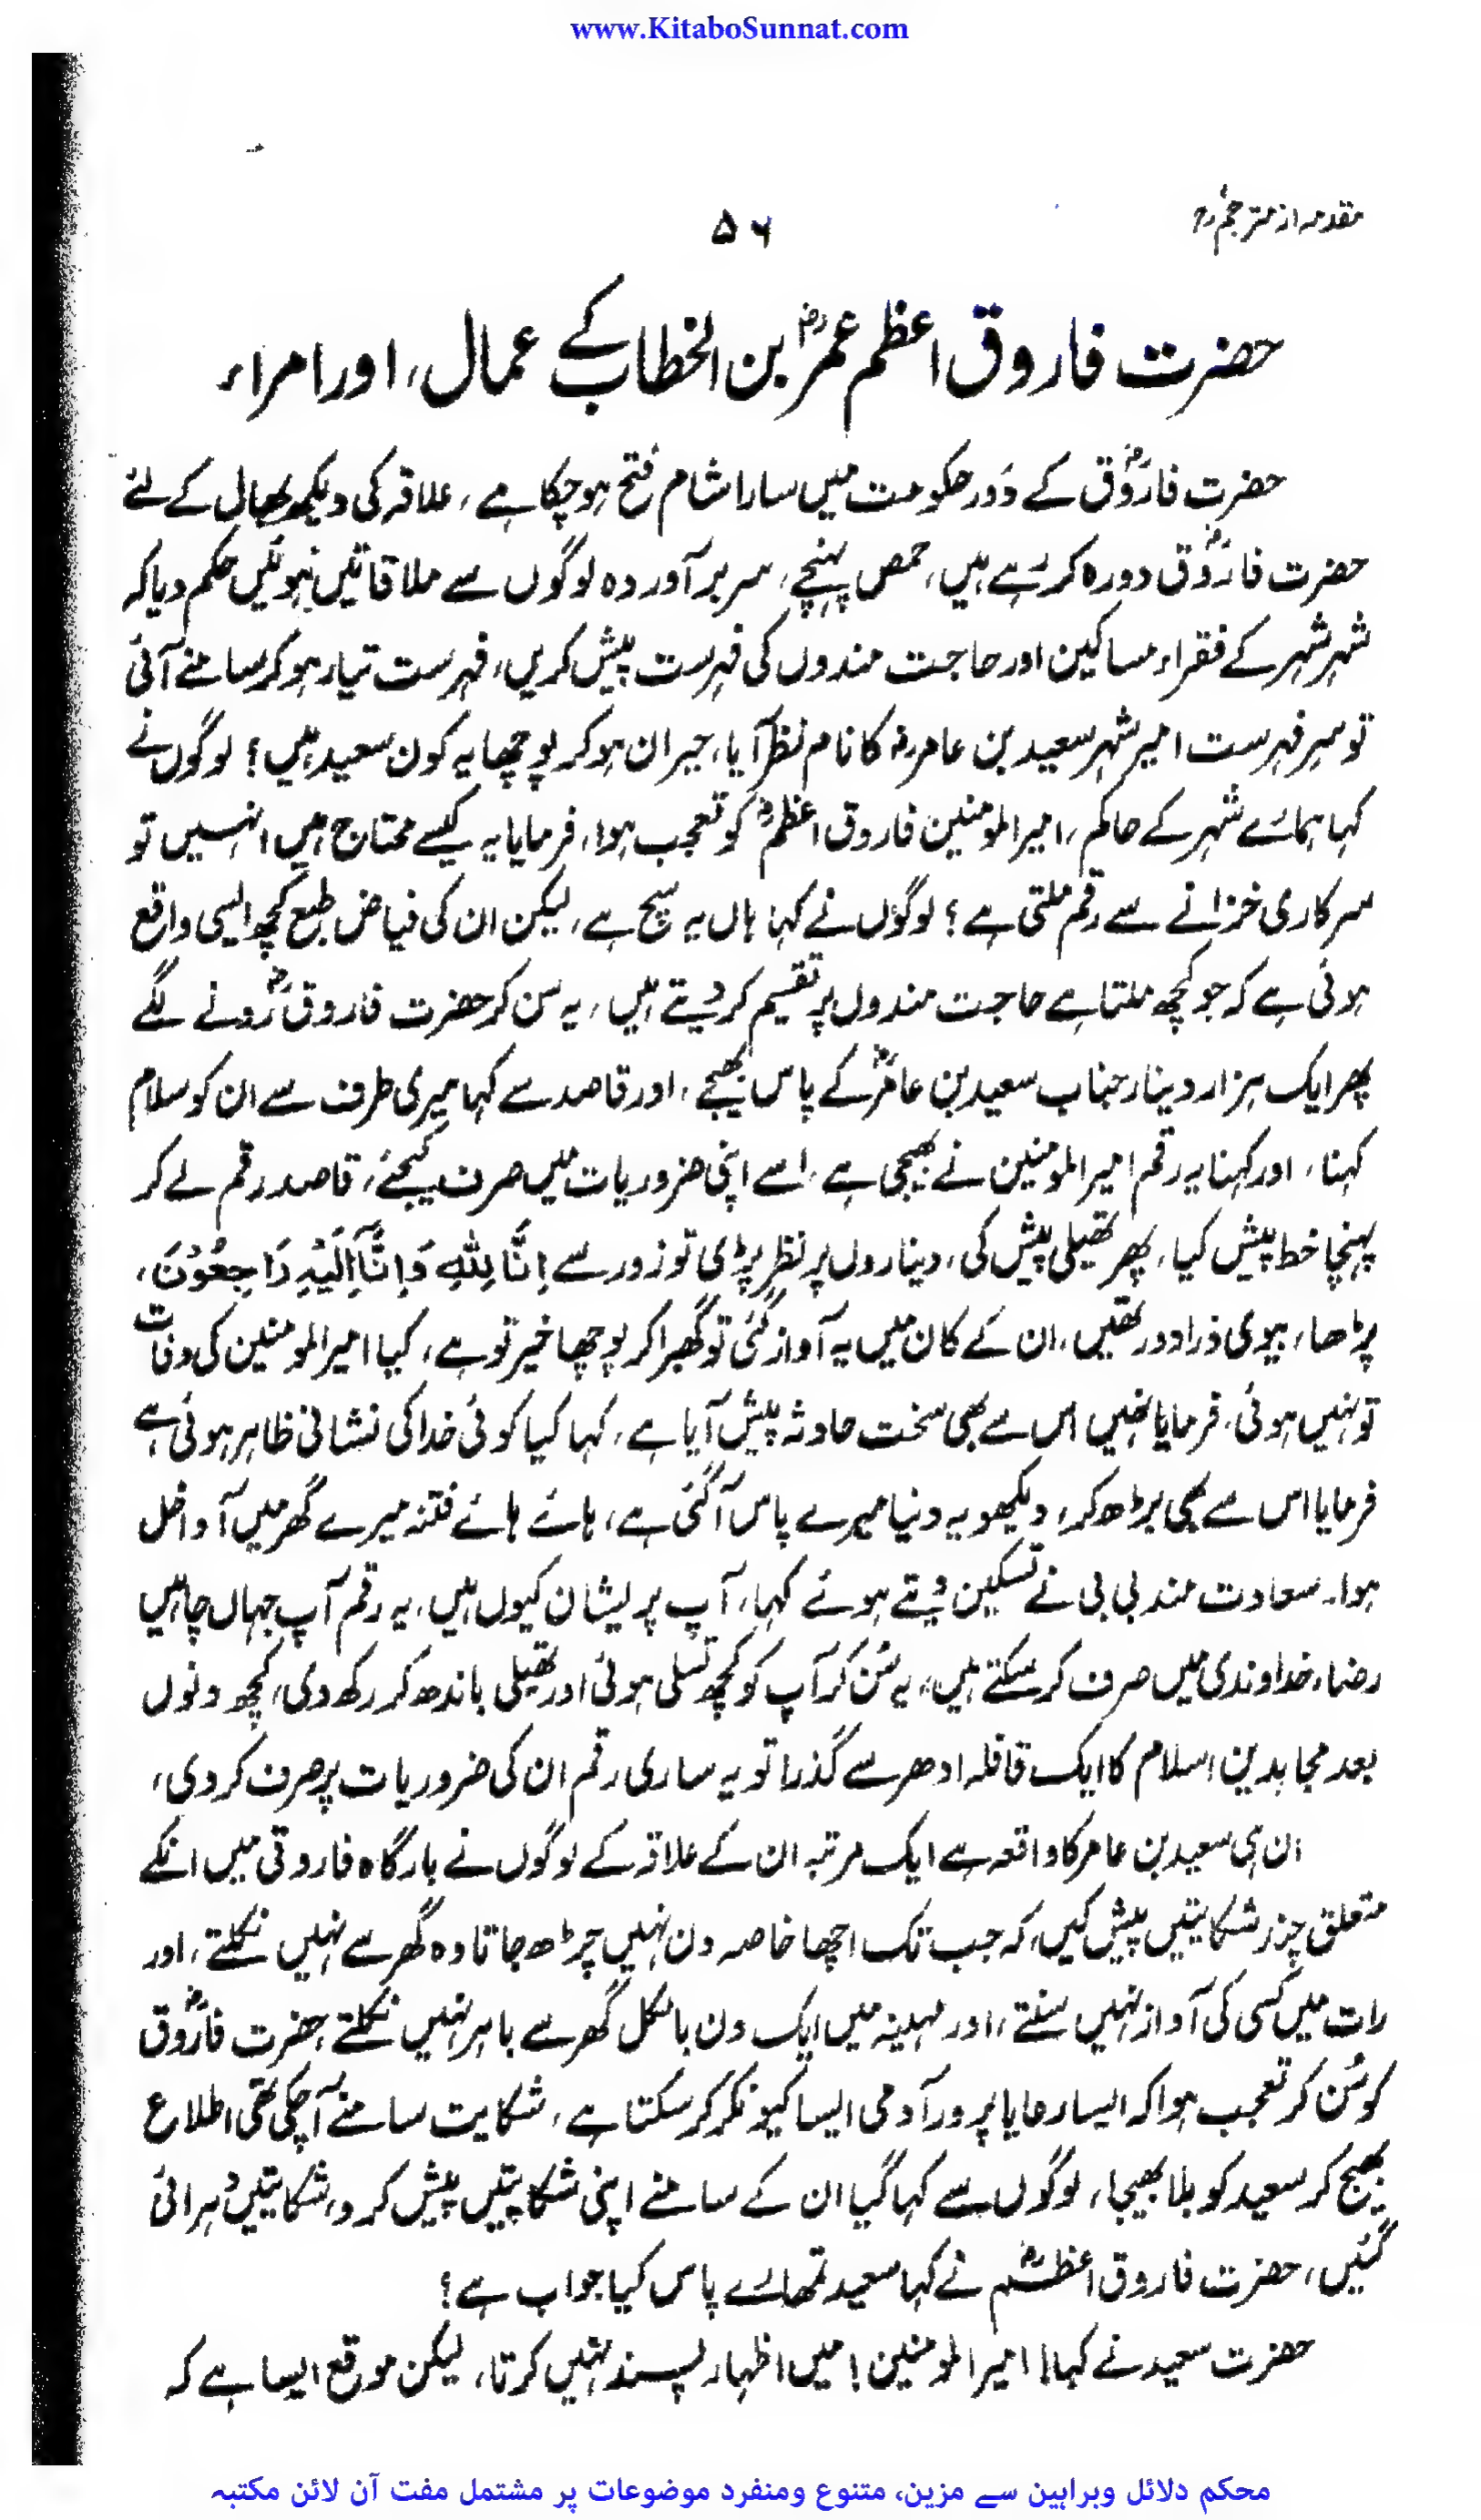 www.KitaboSunnat.com
مقدمہ از مترجمؒ
۵۶
حضرت فاروق اعظم عمرؓ بن الخطاب کے عمال، اور امراء
حضرت فاروقؓ کے دَور حکومت میں سارا شام فتح ہو چکا ہے، علاقہ کی دیکھ بھال کے لئے
حضرت فاروقؓ دورہ کر رہے ہیں، حمص پہنچے، سر بر آوردہ لوگوں سے ملاقاتیں ہوئیں حکم دیا کہ
شہر شہر کے فقراء مساکین اور حاجت مندوں کی فہرست پیش کریں، فہرست تیار ہو کر سامنے آئی
تو سر فہرست امیر شہر سعید بن عامرؓ کا نام نظر آیا، حیران ہو کر پوچھا یہ کون سعید ہیں؟ لوگوں نے
کہا ہمارے شہر کے حاکم، امیر المومنین فاروق اعظمؓ کو تعجب ہوا، فرمایا یہ کیسے محتاج ہیں انہیں تو
سرکاری خزانے سے رقم ملتی ہے؟ لوگوں نے کہا ہاں یہ سچ ہے، لیکن ان کی فیاض طبع کچھ ایسی واقع
ہوئی ہے کہ جو کچھ ملتا ہے حاجت مندوں پر تقسیم کر دیتے ہیں، یہ سن کر حضرت فاروقؓ رونے لگے
پھر ایک ہزار دینار جناب سعید بن عامرؓ کے پاس بھیجے، اور قاصد سے کہا میری طرف سے ان کو سلام
کہنا، اور کہنا یہ رقم امیر المومنین نے بھیجی ہے، اسے اپنی ضروریات میں صرف کیجئے، قاصد رقم لے کر
پہنچا خط پیش کیا، پھر تھیلی پیش کی، دیناروں پر نظر پڑی تو زور سے اِنَّا لِلّٰہِ وَاِنَّآ اِلَیْہِ رَاجِعُوْنَ،
پڑھا، بیوی ذرا دور تھیں، ان کے کان میں یہ آواز گئی تو گھبرا کر پوچھا خیر تو ہے، کیا امیر المومنین کی وفات
تو نہیں ہوئی، فرمایا نہیں اس سے بھی سخت حادثہ پیش آیا ہے، کہا کیا کوئی خدا کی نشانی ظاہر ہوئی ہے
فرمایا اس سے بھی بڑھ کر، دیکھو یہ دنیا میرے پاس آگئی ہے، ہائے ہائے فتنہ میرے گھر میں آ داخل
ہوا۔ سعادت مند بی بی نے تسکین دیتے ہوئے کہا، آپ پریشان کیوں ہیں، یہ رقم آپ جہاں چاہیں
رضاء خداوندی میں صرف کر سکتے ہیں، یہ سُن کر آپ کو کچھ تسلی ہوئی اور تھیلی باندھ کر رکھ دی، کچھ دنوں
بعد مجاہدین اسلام کا ایک قافلہ ادھر سے گذرا تو یہ ساری رقم ان کی ضروریات پر صرف کر دی،
ان ہی سعید بن عامر کا واقعہ ہے ایک مرتبہ ان کے علاقہ کے لوگوں نے بارگاہ فاروقی میں انکے
متعلق چند شکایتیں پیش کیں، کہ جب تک اچھا خاصہ دن نہیں چڑھ جاتا وہ گھر سے نہیں نکلتے، اور
رات میں کسی کی آواز نہیں سنتے، اور مہینہ میں ایک دن بالکل گھر سے باہر نہیں نکلتے، حضرت فاروقؓ
کو سُن کر تعجب ہوا کہ ایسا رعایا پرور آدمی ایسا کیونکر کر سکتا ہے، شکایت سامنے آچکی تھی اطلاع
بھیج کر سعید کو بلا بھیجا، لوگوں سے کہا گیا ان کے سامنے اپنی شکایتیں پیش کرو، شکایتیں دُہرائی
گئیں، حضرت فاروق اعظمؓ نے کہا سعید تمھارے پاس کیا جواب ہے؟
حضرت سعید نے کہا! امیر المومنین! میں اظہار پسند نہیں کرتا، لیکن موقع ایسا ہے کہ
محکم دلائل وبراہین سے مزین، متنوع ومنفرد موضوعات پر مشتمل مفت آن لائن مکتبہ